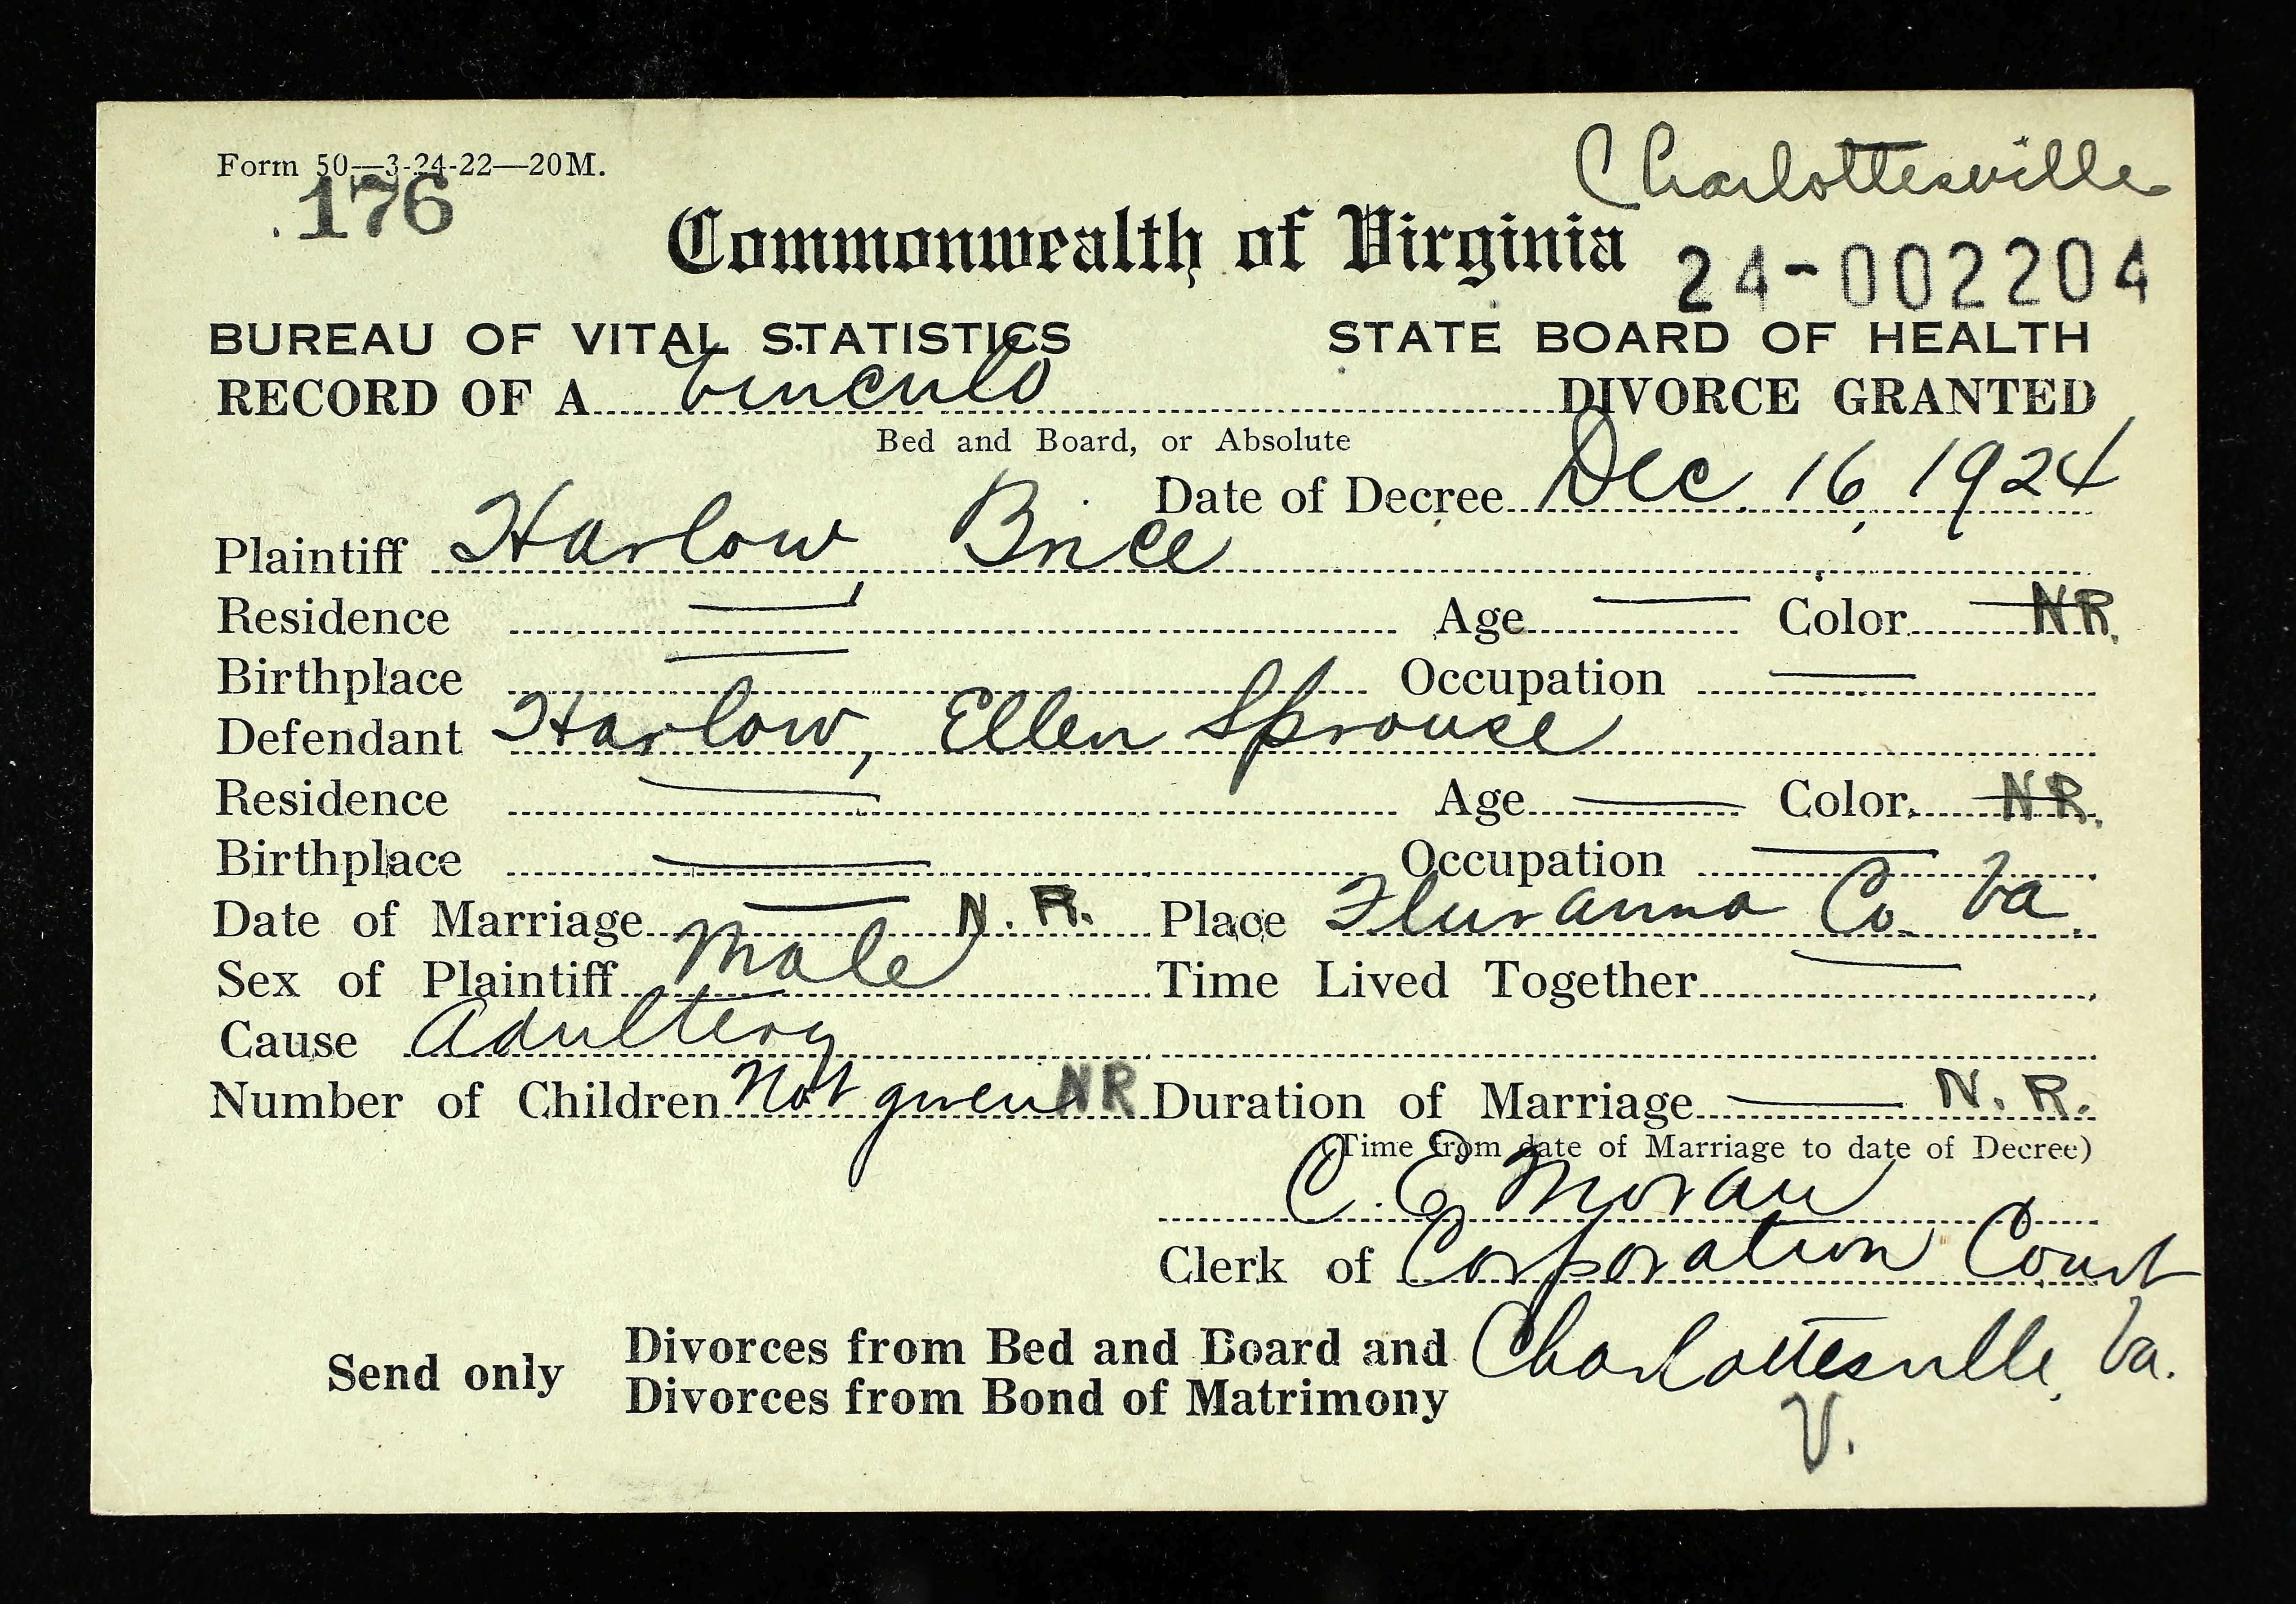 Form 50—3-24-22—20M.
Charlottesville
.176
Commonwealth of Virginia
24-002204
BUREAU OF VITAL STATISTICS STATE BOARD OF HEALTH
RECORD OF A Vinculo DIVORCE GRANTED
Bed and Board, or Absolute
Date of Decree Dec. 16, 1924
Plaintiff Harlow, Brice
Residence — Age — Color — NR.
Birthplace — Occupation —
Defendant Harlow, Ellen Sprouse
Residence — Age — Color. — NR.
Birthplace — Occupation —
Date of Marriage — N. R. Place Fluvanna Co. Va.
Sex of Plaintiff Male Time Lived Together —
Cause Adultery
Number of Children Not given NR Duration of Marriage — N. R.
(Time from date of Marriage to date of Decree)
C. E. Moran
Clerk of Corporation Court
Send only Divorces from Bed and Board and Charlottesville, Va.
Divorces from Bond of Matrimony
V.